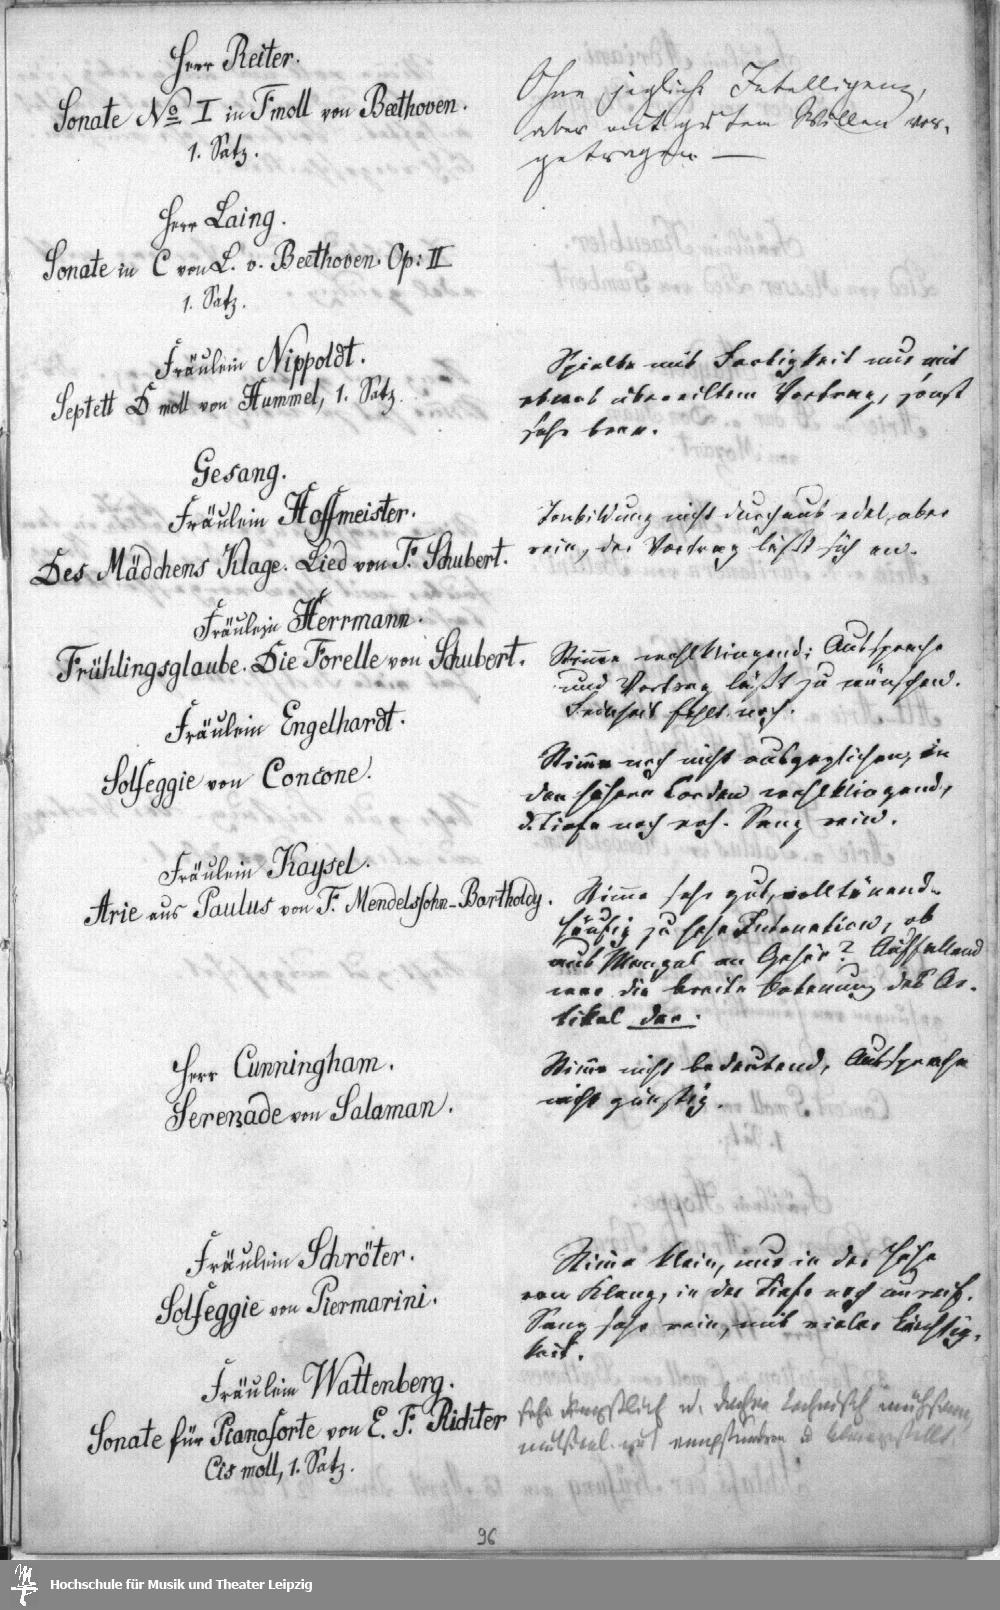 Herr Reiter.
Sonate No I in Fmoll von Beethoven.
1. Satz.
Ohne jegliche Intelligenz,
aber mit gutem Willen vor-
getragen —
Herr Laing.
Sonate in C von L. v. Beethoven. Op: II
1. Satz.
Fräulein Nippoldt.
Septett D moll von Hummel, 1. Satz.
Spielte mit Fertigkeit nur mit
etwas übereiltem Vortrag, sonst
sehr brav.
Gesang.
Fräulein Hoffmeister.
Des Mädchens Klage. Lied von F. Schubert.
Tonbildung nicht durchaus edel, aber
rein, der Vortrag läßt sich an.
Fräulein Herrmann.
Frühlingsglaube. Die Forelle von Schubert.
Stimme wohlklingend; Aussprache
und Vortrag läßt zu wünschen.
Feinheit fehlt noch.
Fräulein Engelhardt.
Solfeggie von Concone.
Stimme noch nicht ausgeglichen, in
den höhern Corden wohlklingend,
d. Tiefe noch roh. Sang rein.
Fräulein Kaysel.
Arie aus Paulus von F. Mendelssohn-Bartholdy.
Stimme sehr gut, volltönend.
häufig zu hohe Intonation, ob
aus Mangel an Gehör? Auffallend
war die breite Betonung des Ar-
tikel der.
Herr Cunningham.
Serenade von Salaman.
Stimme nicht bedeutend, Aussprache
nicht günstig.
Fräulein Schröter.
Solfeggie von Piermarini.
Stimme klein, nur in der Höhe
von Klang, in der Tiefe noch unreif.
Sang sehr rein, mit vieler Tüchtig-
keit.
Fräulein Wattenberg.
Sonate für Pianoforte von E. F. Richter
Cis moll, 1. Satz.
sehr ängstlich u. daher technisch mühsam
musikal. gut empfunden u
96
Hochschule für Musik und Theater Leipzig